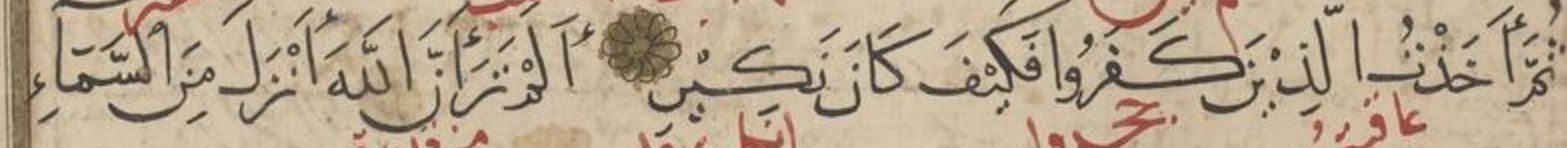 ثُمَّ أَخَذْتُ الَّذِيْنَ كَفَرُوا فَكَيْفَ كَانَ نَكِيْرِ أَلَمْ تَرَ أَنَّ اللَّهَ أَنْزَلَ مِنَ السَّمَآءِ
جحدوا